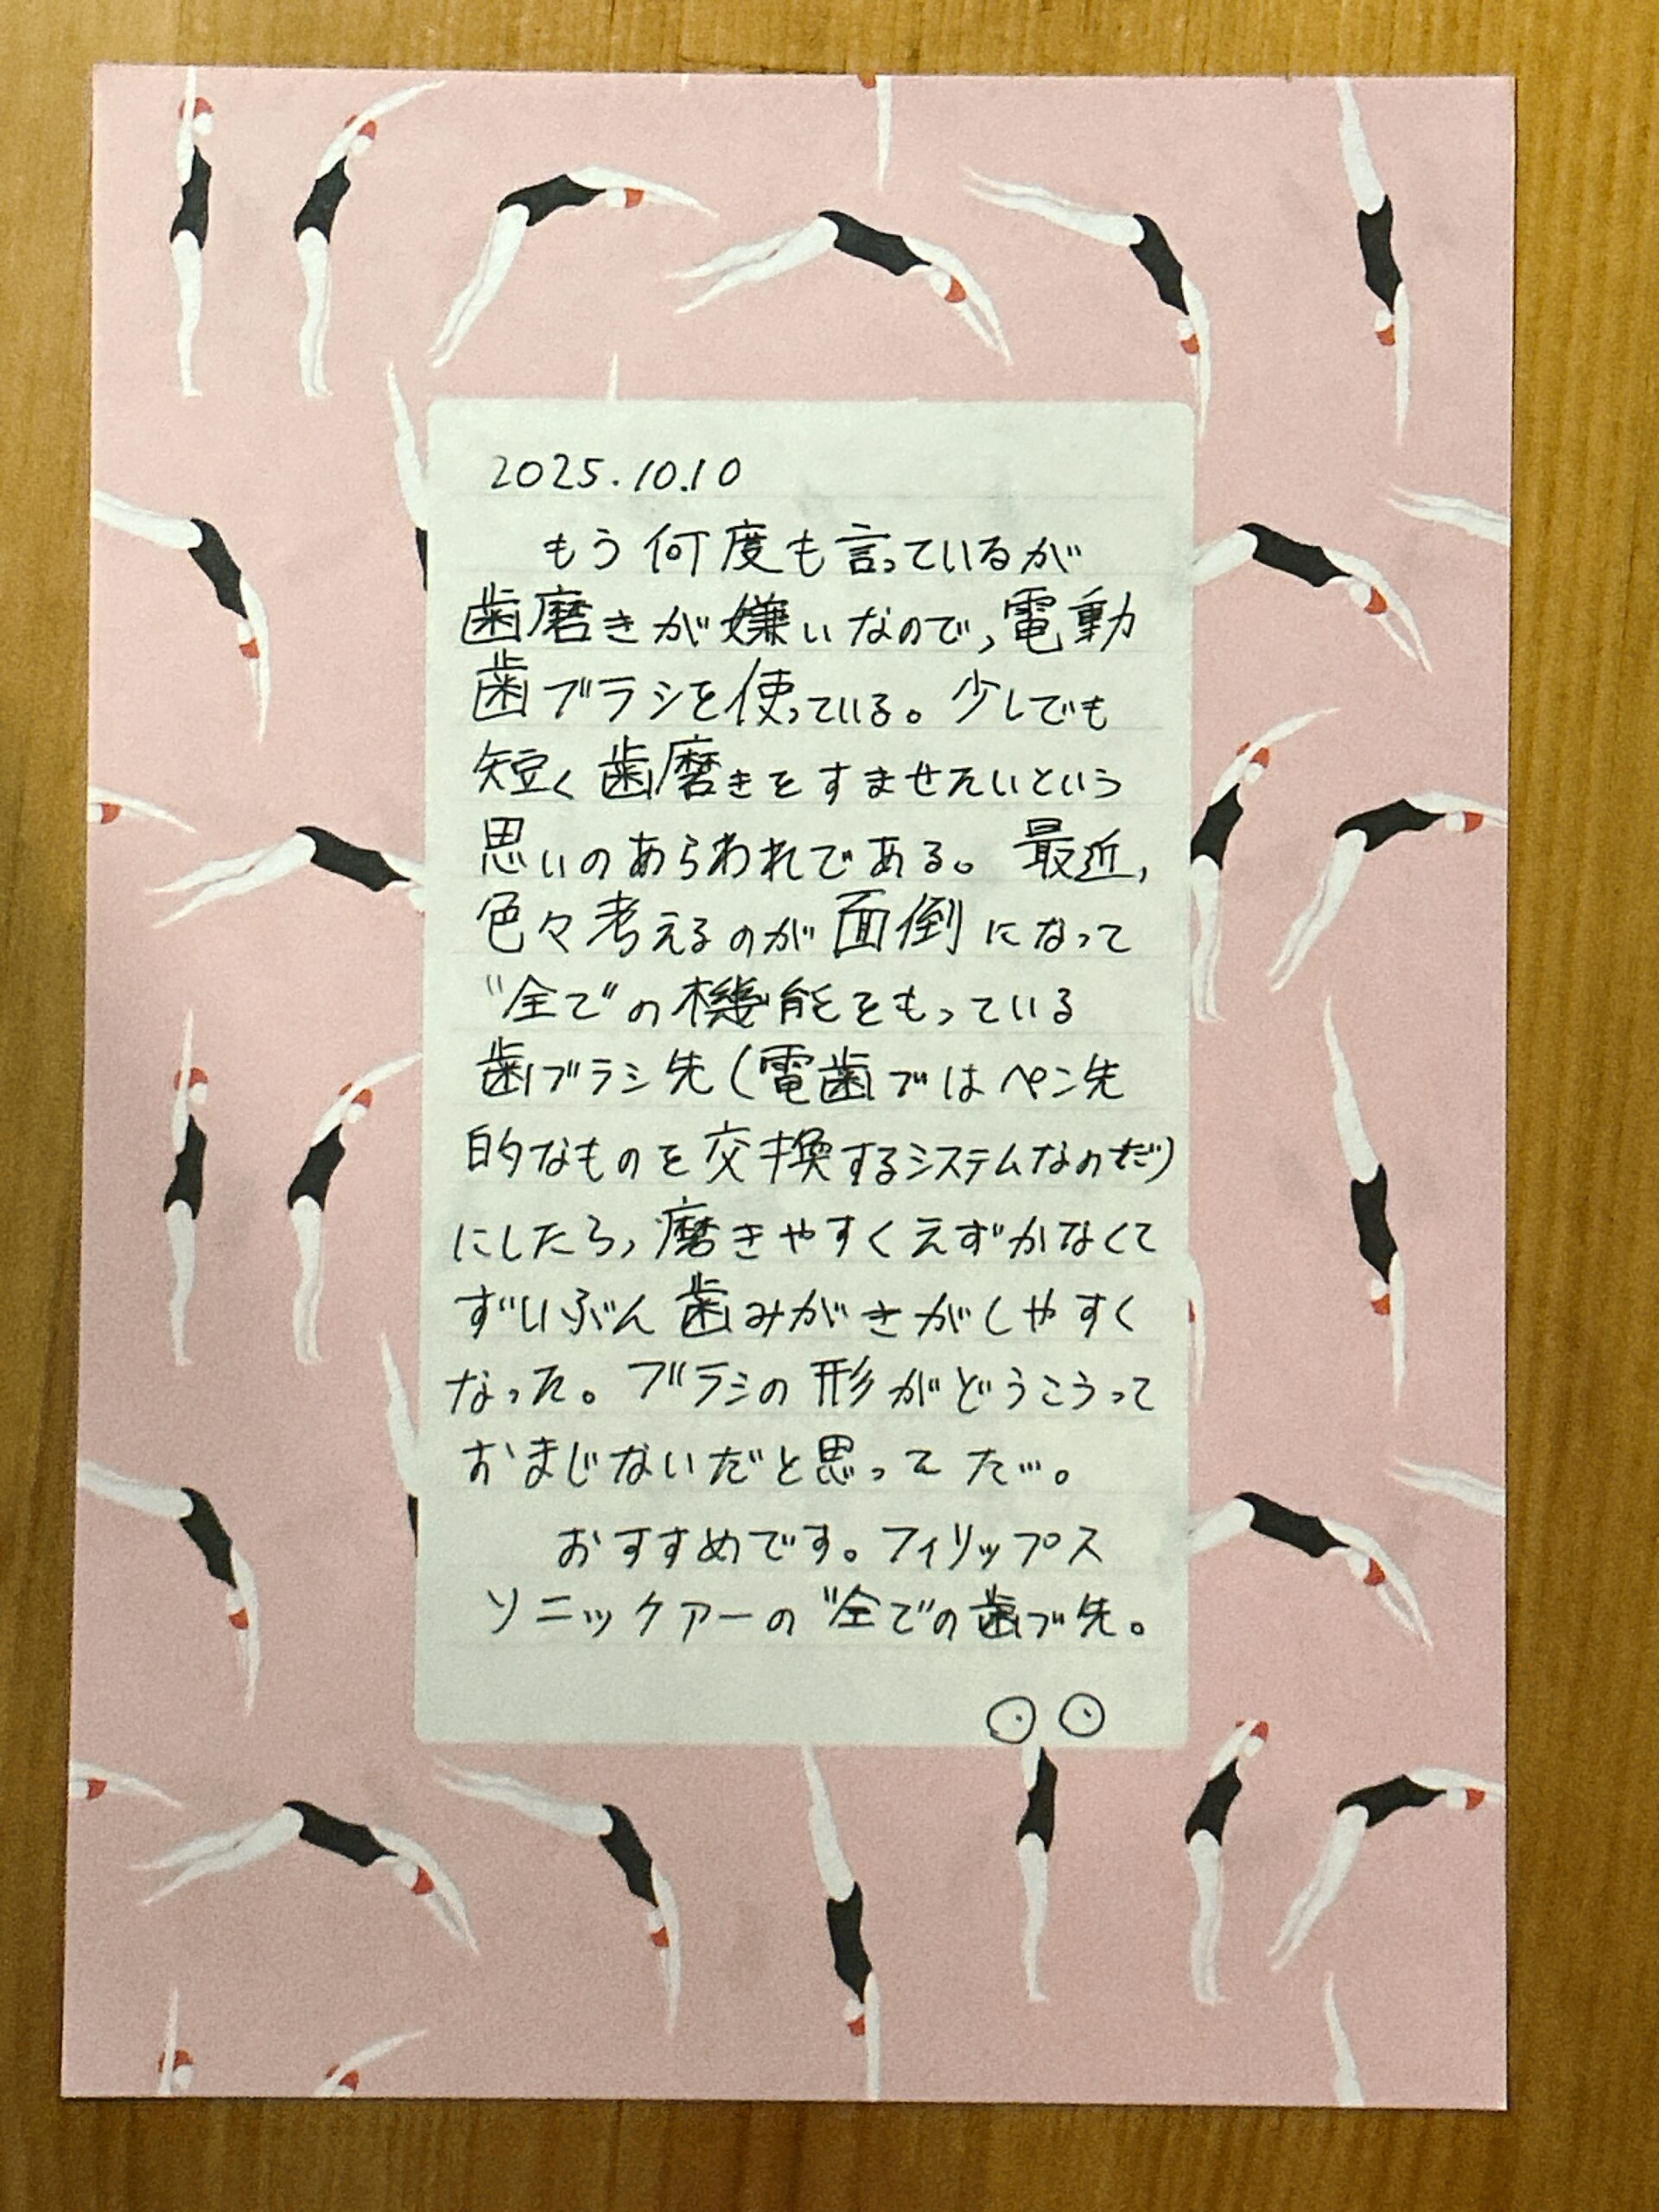 2025.10.10
もう何度も言っているが
歯磨きが嫌いなので，電動
歯ブラシを使っている。少しでも
短く歯磨きをすませたいという
思いのあらわれである。最近，
色々考えるのが面倒になって
"全て"の機能をもっている
歯ブラシ先(電歯ブはペン先
的なものを交換するシステムなのだ)
にしたら，磨きやすくえずかなくて
ずいぶん歯みがきがしやすく
なった。ブラシの形がどうこうって
おまじないだと思ってた…。
おすすめです。フィリップス
ソニックケアーの"全て"の歯ブ先。